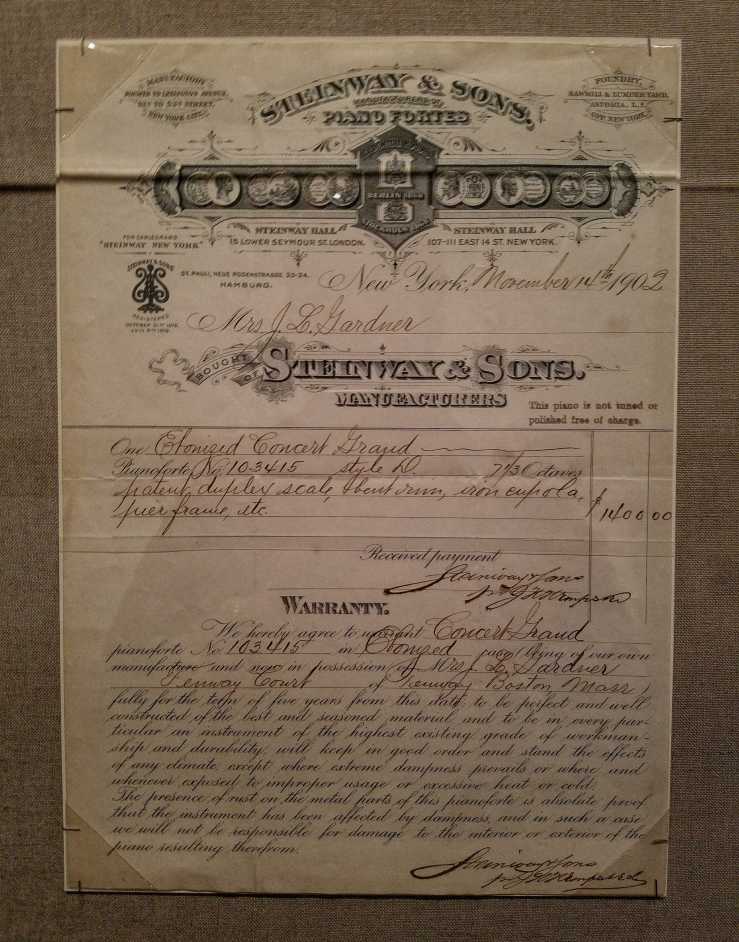 MANUFACTORY
FOURTH TO LEXINGTON AVENUE,
52ND TO 53RD STREET,
NEW YORK CITY.
STEINWAY & SONS,
MANUFACTURERS OF
PIANO FORTES
FOUNDRY,
SAWMILL & LUMBER YARD,
ASTORIA, L.I.
OPP. NEW YORK.
BERLIN
STOCKHOLM
STEINWAY HALL
15 LOWER SEYMOUR ST. LONDON.
STEINWAY HALL
107-111 EAST 14 ST. NEW YORK.
FOR CABLEGRAMS
"STEINWAY NEW YORK"
ST. PAULI, NEUE ROSENSTRASSE 20-24,
HAMBURG.
STEINWAY & SONS
REGISTERED
New York, November 14th 1902
Mrs J. L. Gardner
BOUGHT OF
STEINWAY & SONS.
MANUFACTURERS
This piano is not tuned or
polished free of charge.
One Ebonized Concert Grand
Pianoforte No. 103415 style D. 7 1/3 Octaves
patent, duplex scale & bent rim, iron cupola,
pier frame, etc. $ 1400 00
Received payment
Steinway & Sons
WARRANTY.
We hereby agree to warrant Concert Grand
pianoforte No. 103415 in Ebonized case, being of our own
manufacture and now in possession of Mrs J. L. Gardner
Fenway Court of Fenway Boston Mass,
fully for the term of five years from this date, to be perfect and well
constructed of the best and seasoned material and to be in every par-
ticular an instrument of the highest existing grade of workman-
ship and durability, will keep in good order and stand the effects
of any climate, except where extreme dampness prevails or where and
whenever exposed to improper usage or excessive heat or cold.
The presence of rust on the metal parts of this pianoforte is absolute proof
that the instrument has been affected by dampness, and in such a case
we will not be responsible for damage to the interior or exterior of the
piano resulting therefrom.
Steinway & Sons